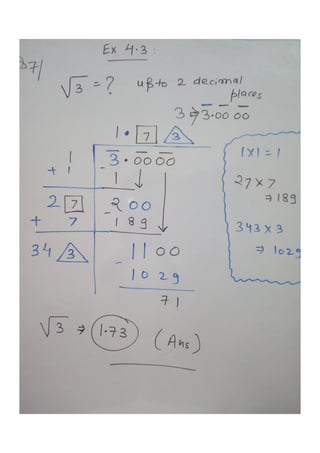 Ex 4.3 :
37/
√3 = ? upto 2 decimal
places
3 ⇒ 3.00 00
1 . 7 3
1 3.00 00
+ 1 - 1
2 7 200
+ 7 - 189
34 3 1100
- 1029
71
1x1 = 1
27 x 7
⇒ 189
343 x 3
⇒ 1029
√3 ⇒ 1.73 (Ans)